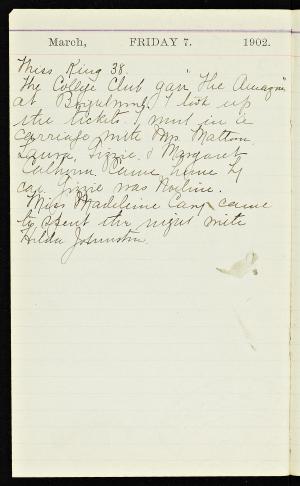 March, FRIDAY 7. 1902.
Miss King 38.
The College Club gave "The Amazons"
at I took up
the tickets. I went in a
carriage with Mrs. Mattom
Laura, Lizzie, & Margaret
Calhoun. Came home by
car. Lizzie was
Miss Madeleine came
to spend the night with
Hilda Johnston.